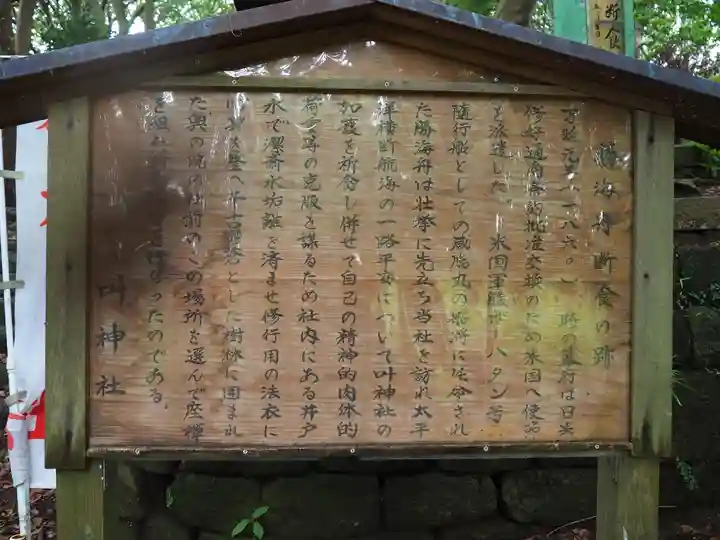 勝海舟断食の跡
万延元年(一八六〇)時の幕府は日米
修好通商条約批准交換のため米国へ使節
を派遣した。米国軍艦ポーハタン号
随行艦としての咸臨丸の艦将に任命され
た勝海舟は壮挙に先立ち当社を訪れ太平
洋横断航海の一路平安について叫神社の
加護を祈念し併せて自己の精神的肉体的
荷重等の克服を謀るため社内にある井戸
水で潔斎水垢離を済ませ修行用の法衣に
とした樹林に囲まれ
た奥の院の前のこの場所を選んで座禅
を組み ったのである。
叫神社
断食